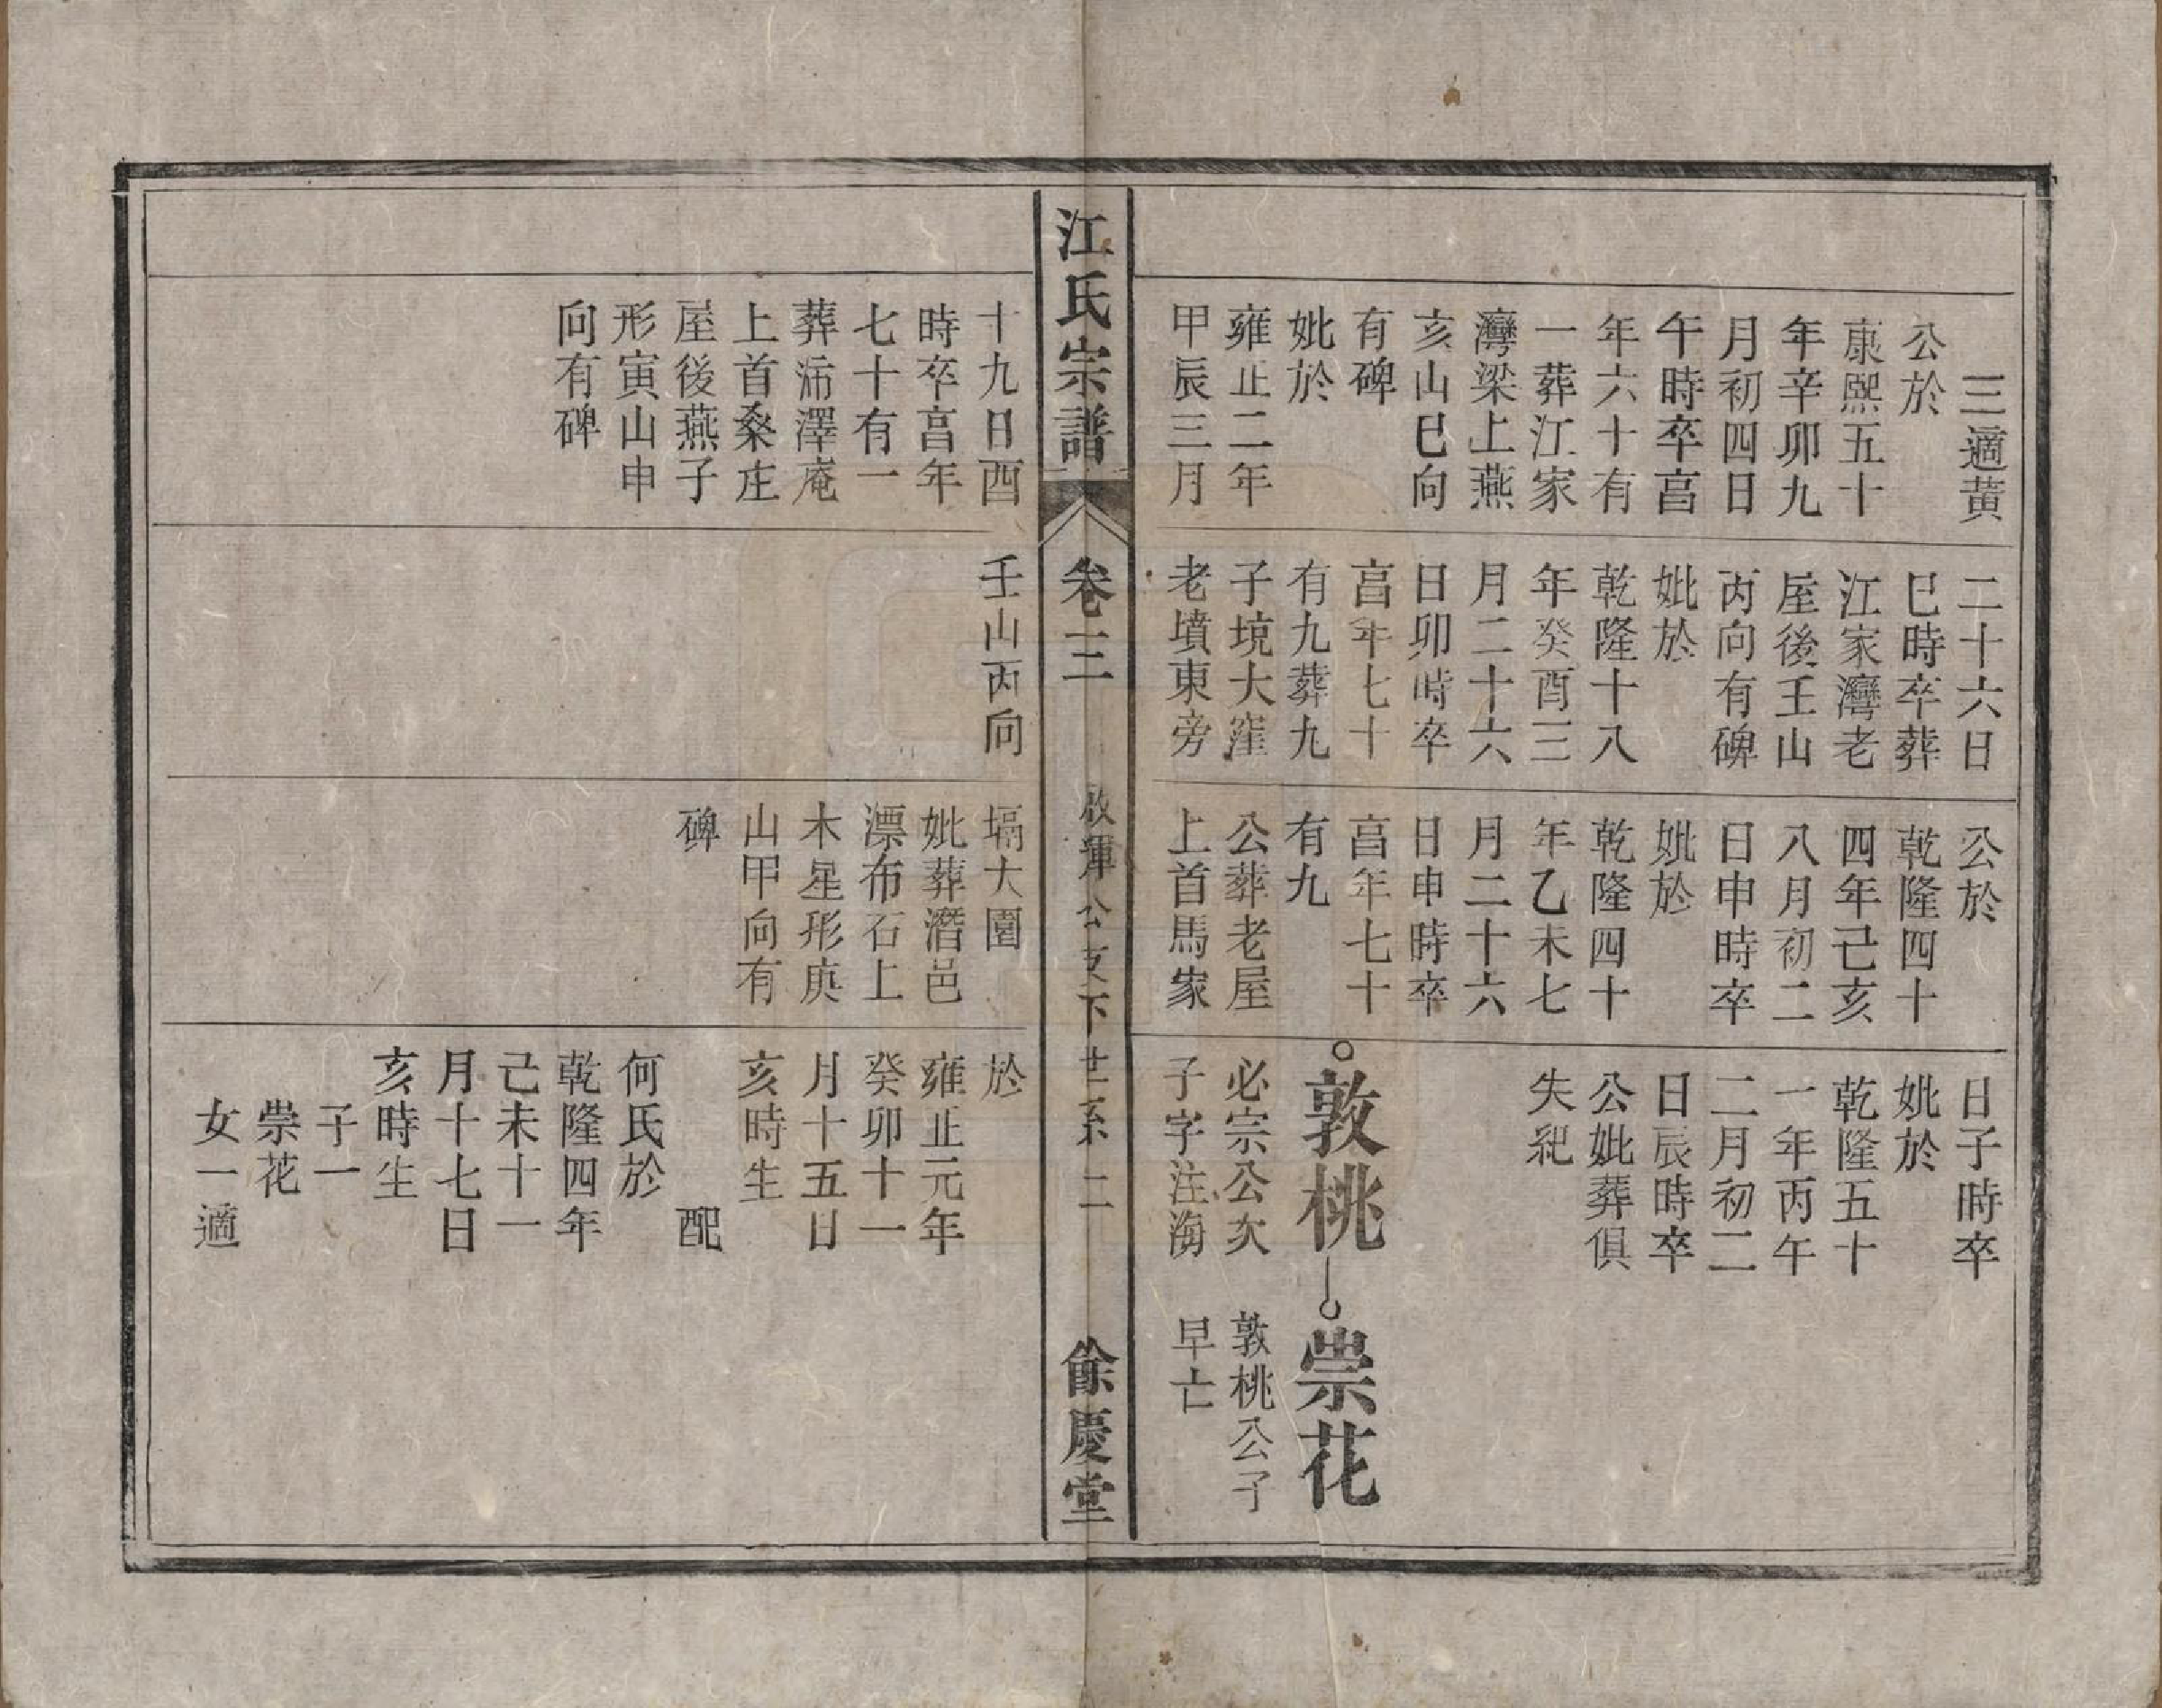 三適黃
公於
康熙五十
年辛卯九
月初四日
午時卒亯
年六十有
一葬江家
灣梁上燕
亥山巳向
有碑
妣於
雍正二年
甲辰三月
二十六日
巳時卒葬
江家灣老
屋後壬山
丙向有碑
妣於
乾隆十八
年癸酉三
月二十六
日卯時卒
亯年七十
有九葬九
子境大窪
老墳東旁
公於
乾隆四十
四年己亥
八月初二
日申時卒
妣於
乾隆四十
年乙未七
月二十六
日申時卒
亯年七十
有九
公葬老屋
上首馬家
日子時卒
姚於
乾隆五十
一年丙午
二月初二
日辰時卒
公妣葬俱
失紀
敦桃
必宗公次
子字注海
崇花
敦桃公子
早亡
江氏宗譜
卷三
啟運公支下世系 二
餘慶堂
十九日酉
時卒亯年
七十有一
葬㳍澤庵
上首桑庄
屋後燕子
形寅山申
向有碑
壬山丙向
塥大園
妣葬潛邑
漂布石上
木星形庚
山甲向有
碑
於
雍正元年
癸卯十一
月十五日
亥時生
配
何氏於
乾隆四年
己未十一
月十七日
亥時生
子一
崇花
女一適